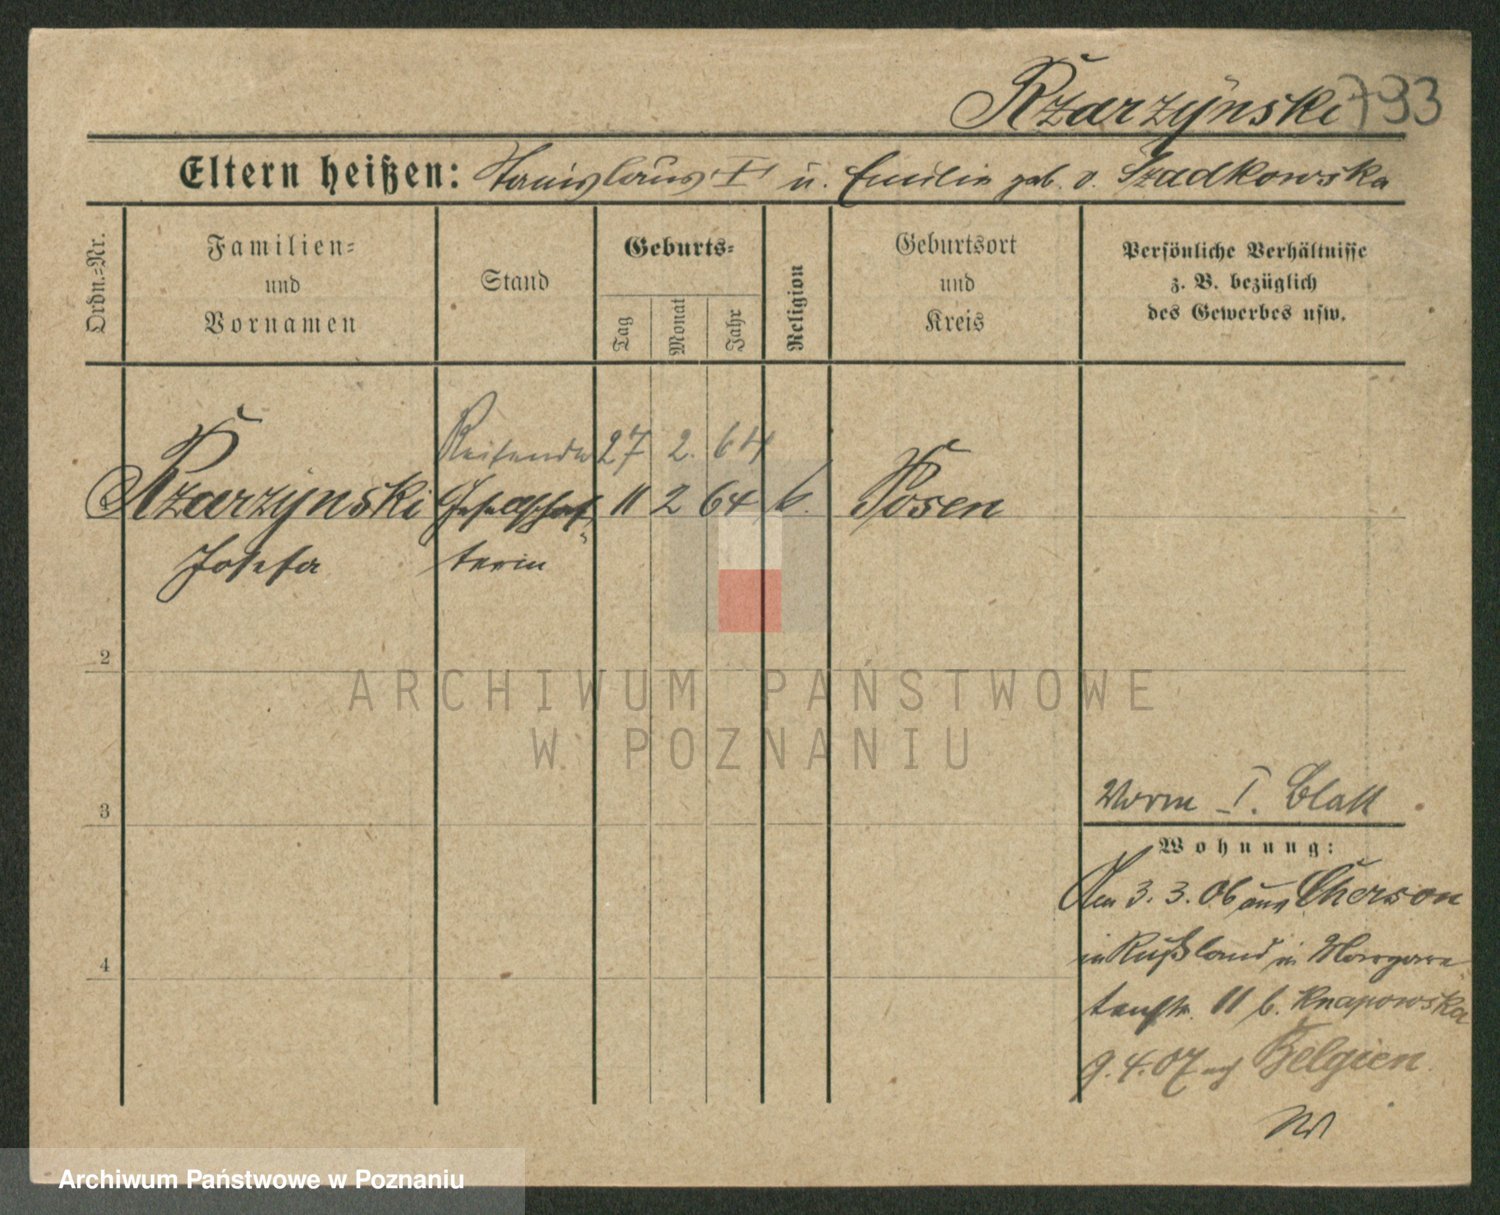 Rzarzynski 793
Eltern heißen: Stanislaus I u. Emilie geb. v. Szadkowska
Ordn.=Nr.
Familien=
und
Vornamen
Stand
Geburts=
Tag
Monat
Jahr
Religion
Geburtsort
und
Kreis
Persönliche Verhältnisse
z. B. bezüglich
des Gewerbes usw.
Reisende 27 2. 64
Rzarzynski Gesellschaf= 11 2 64 k. Posen
Josefa terin
2
ARCHIWUM PAŃSTWOWE
W POZNANIU
3
Worm I. Blatt
Wohnung:
Am 3. 3. 06 aus Cherson
in Rußland in Margare
tenstr. 11 b. Knapowska
4
9. 4. 07 nach Belgien
Archiwum Państwowe w Poznaniu